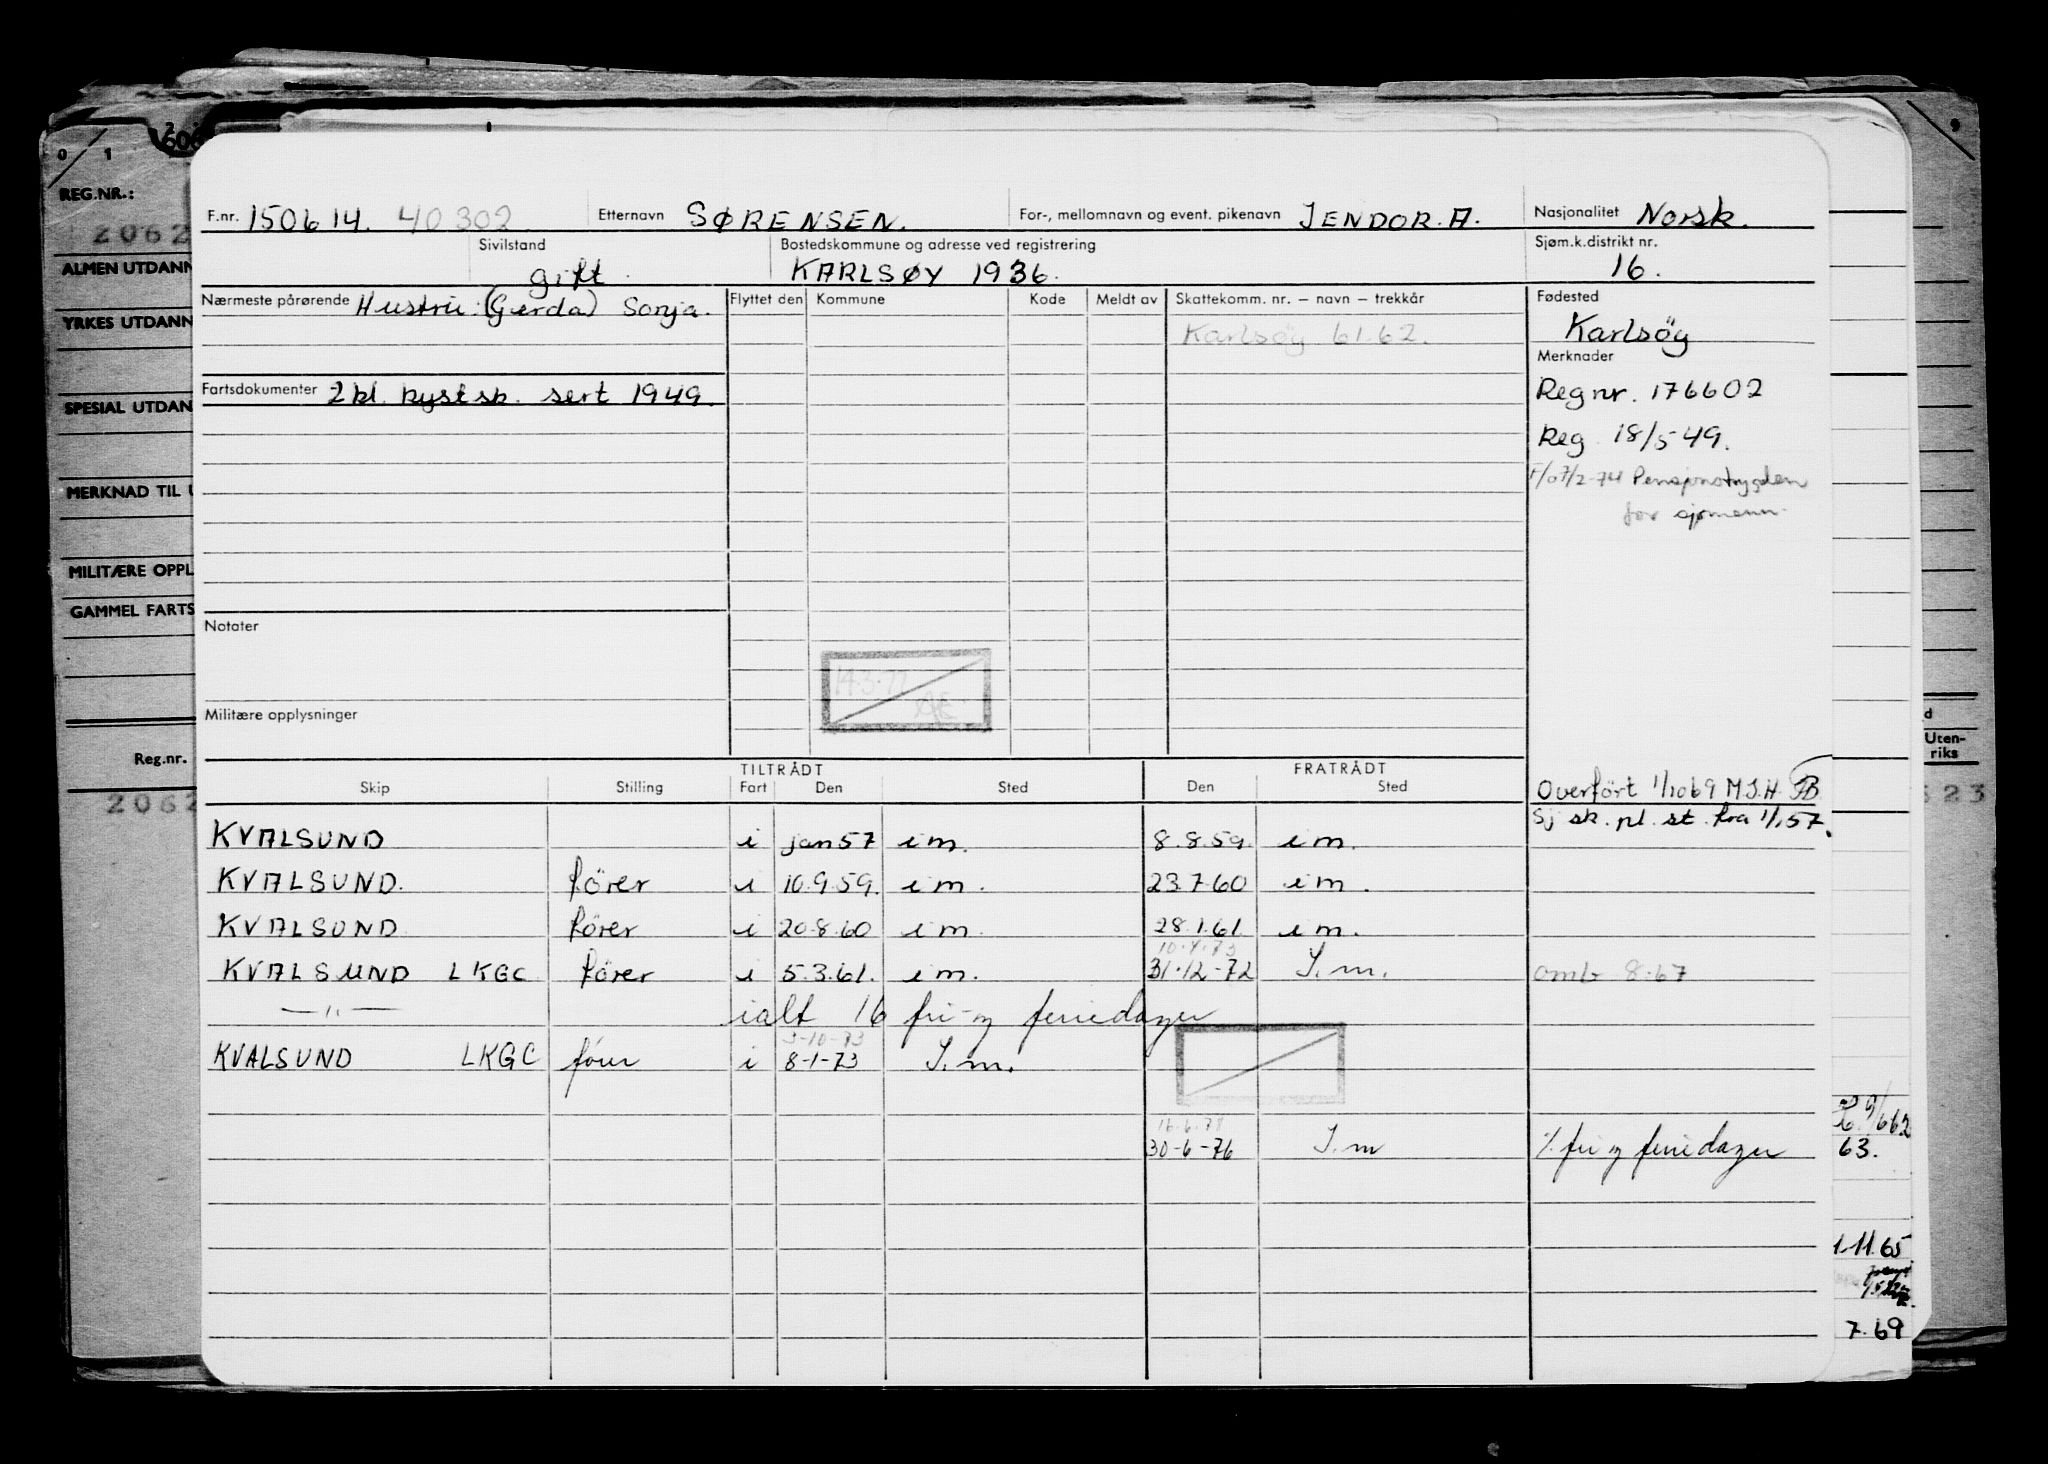 REG.NR.:
2062
ALMEN UTDANN
YRKES UTDANN
SPESIAL UTDAN
MERKNAD TIL U
MILITÆRE OPPL
GAMMEL FARTS
Reg.nr.
2062
F.nr. 150614. 40302 Etternavn SØRENSEN. For-, mellomnavn og event. pikenavn JENDOR. A. Nasjonalitet Norsk.
Sivilstand gift. Bostedskommune og adresse ved registrering KARLSØY 1936. Sjøm.k.distrikt nr. 16.
Nærmeste pårørende Hustru: (Gerda) Sonja. Flyttet den Kommune Kode Meldt av Skattekomm. nr. — navn — trekkår Fødested
Karlsöy 61.62. Karlsöy
Merknader
Fartsdokumenter 2kl. kystsk. sert 1949. Reg nr. 176602
Reg. 18/5-49.
Pensjonstrygden
for sjømenn.
Notater
14.3.77
Militære opplysninger
TILTRÅDT FRATRÅDT
Skip Stilling Fart Den Sted Den Sted Overfört 1/1069 M.J.H.
Sj sk. pl. st. fra 1/1 57.
KVALSUND i jan 57 i m. 8.8.59 i m.
KVALSUND. förer i 10.9.59. i m. 23.7.60 i m.
KVALSUND förer i 20.8.60 i m. 28.1.61 i m.
10.4.73
KVALSUND LKGC förer i 5.3.61. i m. 31.12-72 I. m. omb 8.67
—"— ialt 16 fri- og feriedager
3-10-73
KVALSUND LKGC fórer i 8-1-73 I. m.
16.6.78
30-6-76 I. m ./. fri og feriedager
d
Uten-
riks
523
63.
1.11.65
7.69